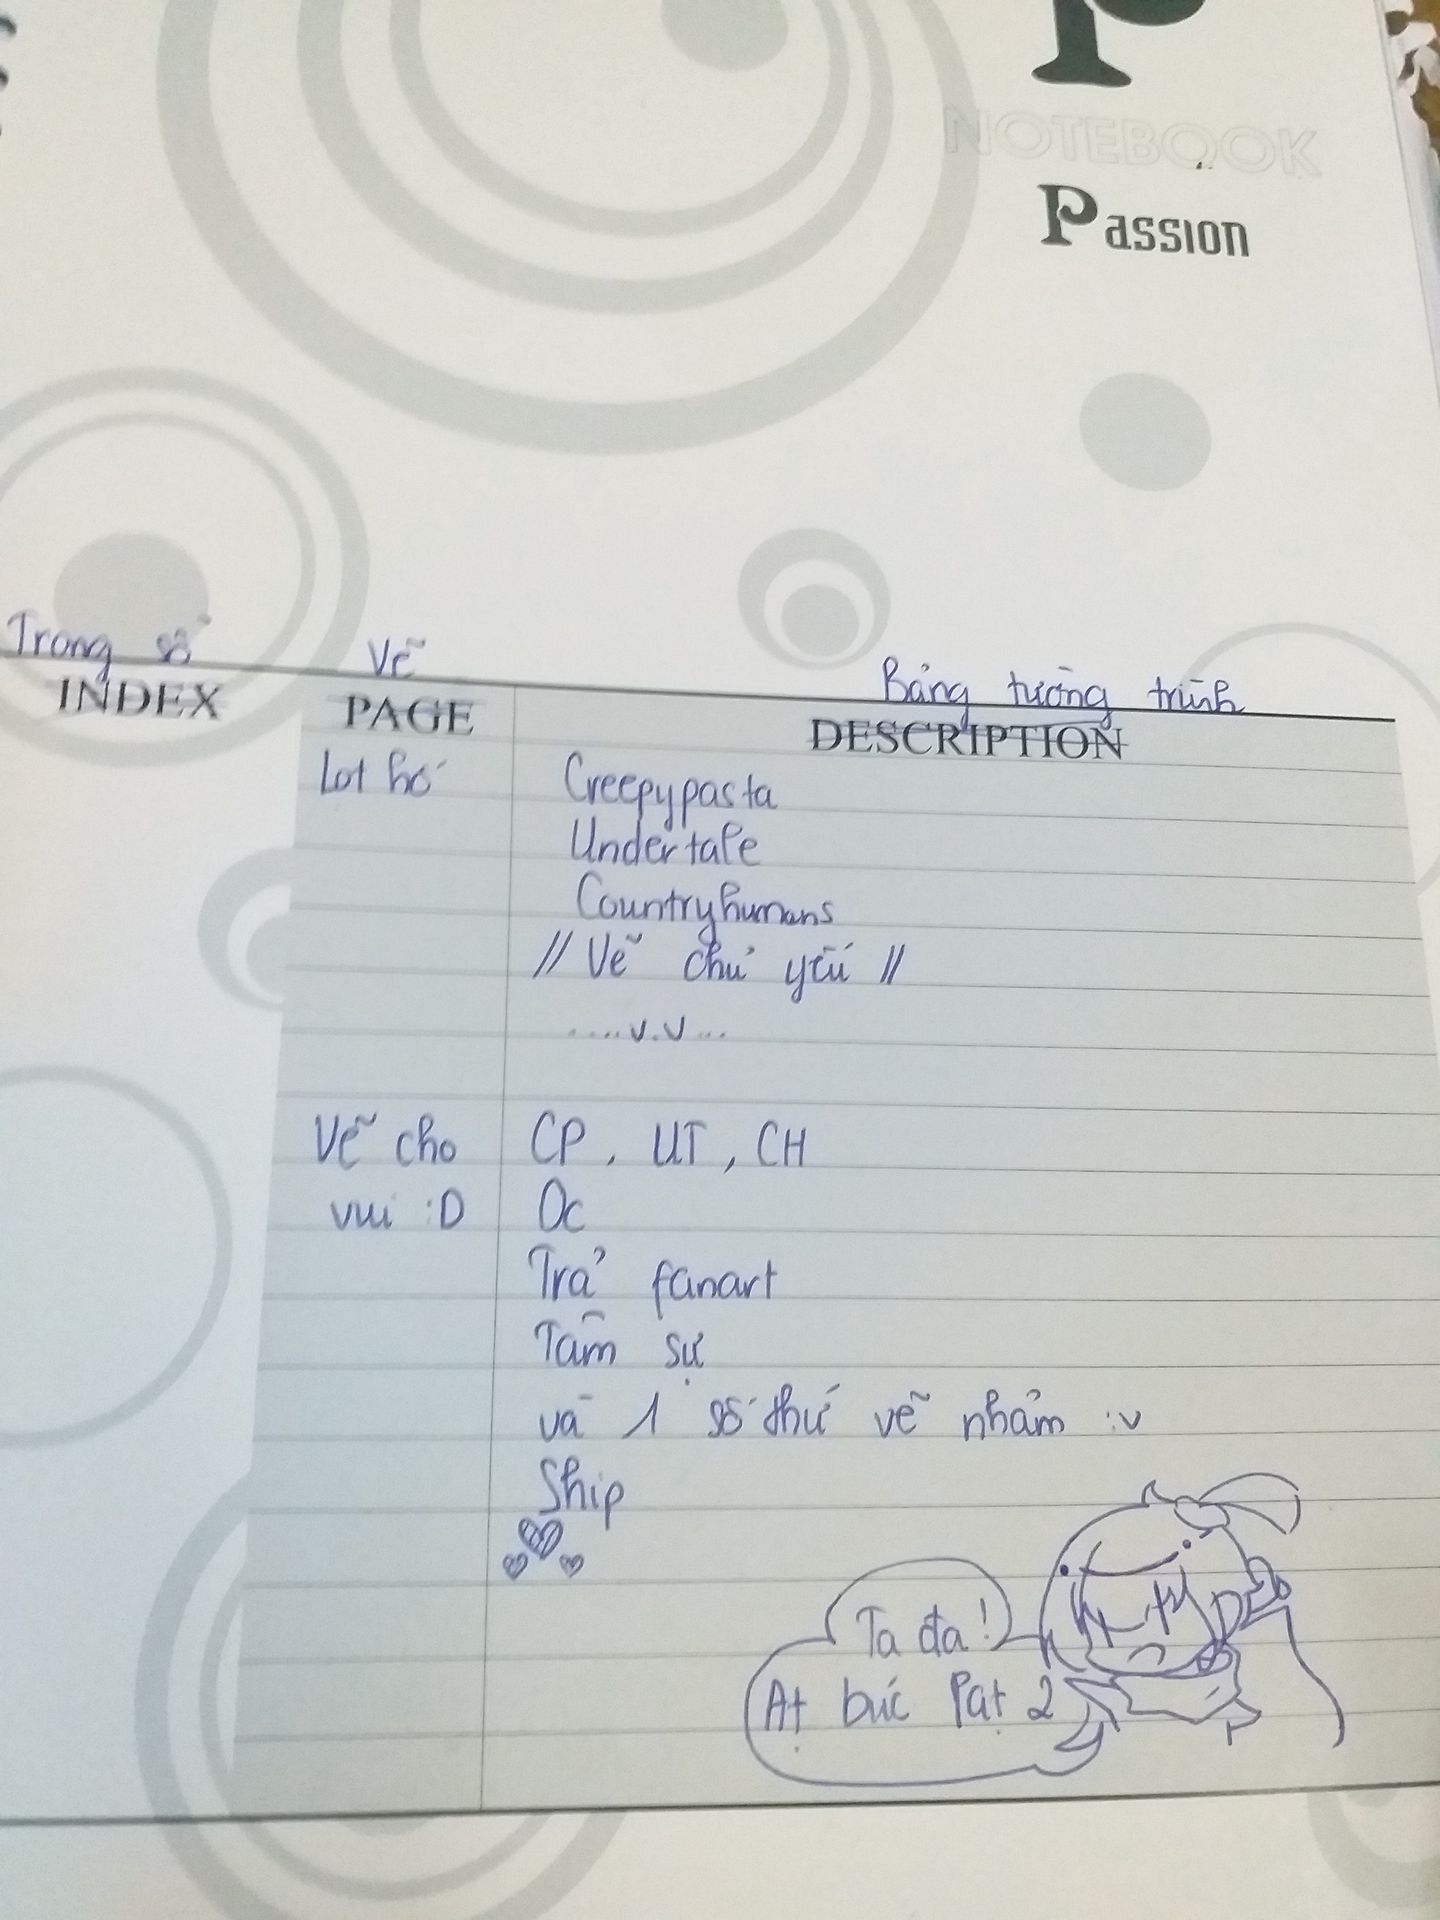 NOTEBOOK
Passion
Trang số Vẽ Bảng tường trình
INDEX PAGE DESCRIPTION
Lot hố Creepypasta
Undertale
Countryhumans
// Vẽ chủ yếu //
....v.v...
Vẽ cho CP, UT, CH
vui :D Oc
Trả fanart
Tâm sự
và 1 số thứ vẽ nhảm :v
Ship
Ta đa!
Ạt búc Pạt 2